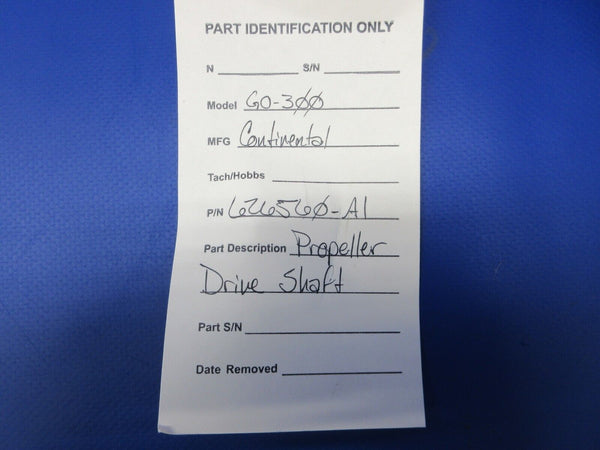 PART IDENTIFICATION ONLY
N ________ S/N ________
Model GO-300
MFG Continental
Tach/Hobbs ________
P/N 626560-A1
Part Description Propeller
Drive Shaft
Part S/N ________
Date Removed ________